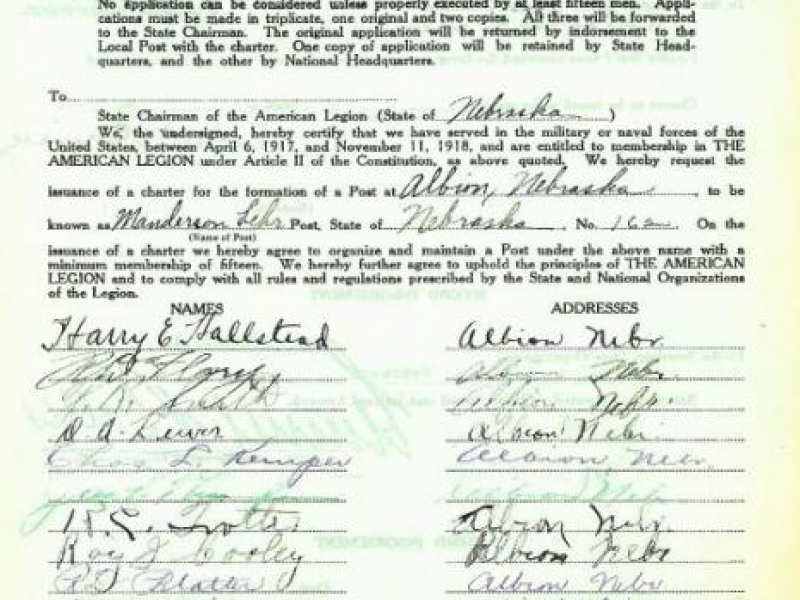 No application can be considered unless properly executed by at least fifteen men. Appli-
cations must be made in triplicate, one original and two copies. All three will be forwarded
to the State Chairman. The original application will be returned by indorsement to the
Local Post with the charter. One copy of application will be retained by State Head-
quarters, and the other by National Headquarters.
To
State Chairman of the American Legion (State of Nebraska)
We, the undersigned, hereby certify that we have served in the military or naval forces of the
United States, between April 6, 1917, and November 11, 1918, and are entitled to membership in THE
AMERICAN LEGION under Article II of the Constitution, as above quoted. We hereby request the
issuance of a charter for the formation of a Post at Albion, Nebraska, to be
known as Manderson Lehr Post, State of Nebraska, No. 162. On the
(Name of Post)
issuance of a charter we hereby agree to organize and maintain a Post under the above name with a
minimum membership of fifteen. We hereby further agree to uphold the principles of THE AMERICAN
LEGION and to comply with all rules and regulations prescribed by the State and National Organizations
of the Legion.
NAMES ADDRESSES
Harry E Hallstead Albion Nebr.
Nebr.
Smith Albion Nebr.
Albion Nebr.
Chas L. Kemper Albion Nebr.
Albion Nebr.
Roy J Cooley Albion Nebr
Albion Nebr